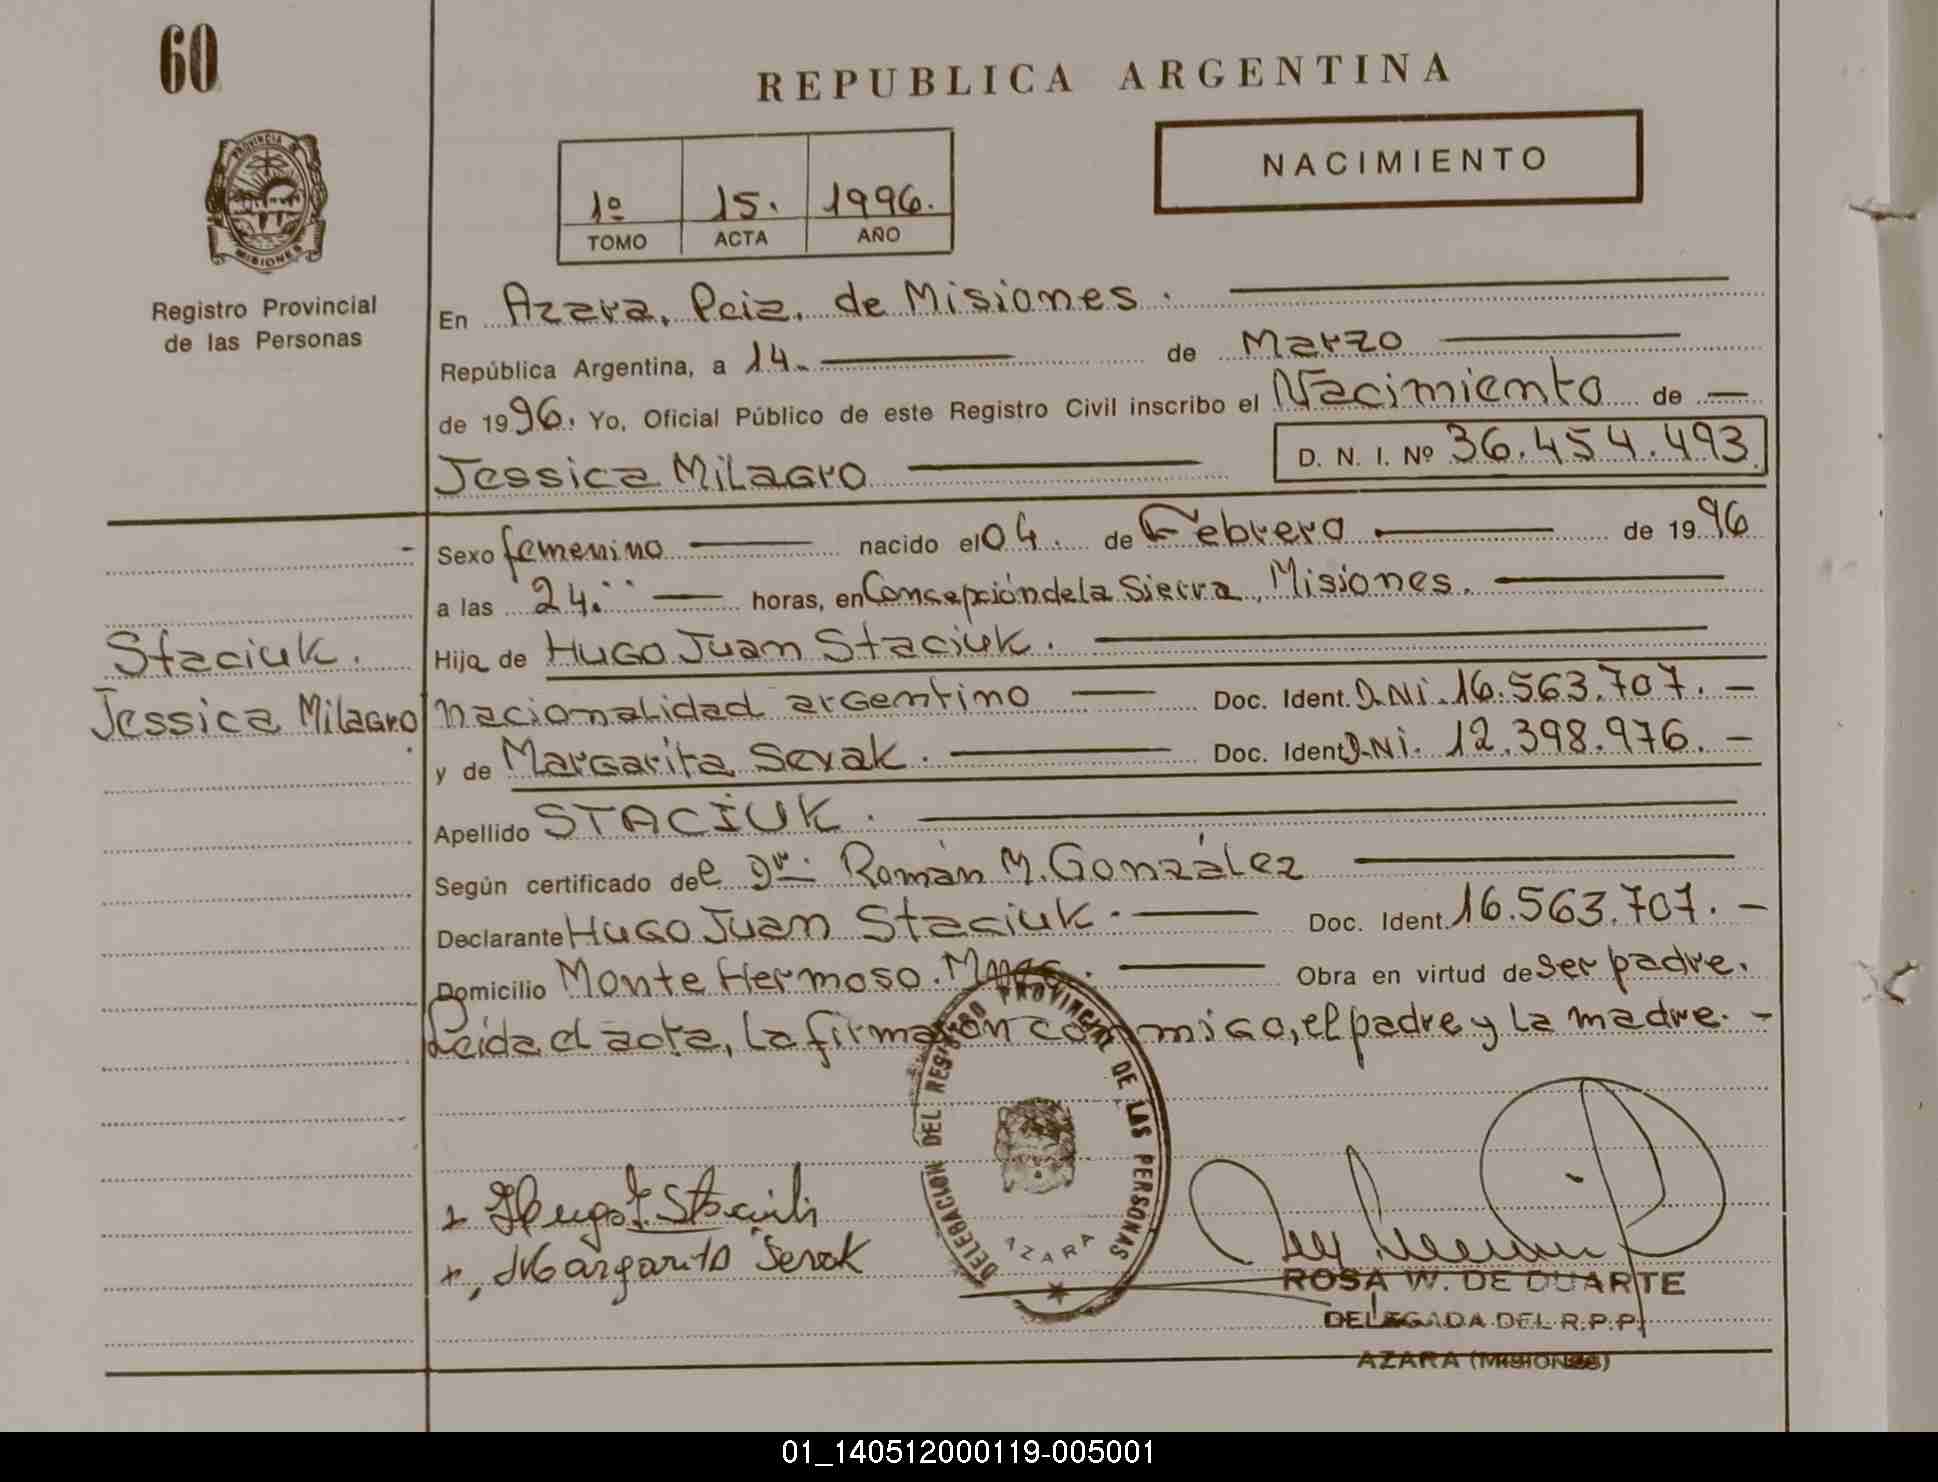 60
REPUBLICA ARGENTINA
NACIMIENTO
1º 15. 1996.
TOMO ACTA AÑO
PROVINCIA DE
MISIONES
Registro Provincial
de las Personas
En Azara, Pcia. de Misiones.
República Argentina, a 14. de Marzo
de 1996. Yo, Oficial Público de este Registro Civil inscribo el Nacimiento de —
Jessica Milagro D. N. I. Nº 36.454.493
Sexo femenino nacido el 04. de Febrero de 1996
a las 24. horas, en Consepción de la Sierra, Misiones.
Staciuk.
Jessica Milagro
Hija de Hugo Juan Staciuk.
Nacionalidad argentino Doc. Ident. D.Ni. 16.563.707. —
y de Margarita Sevak. Doc. Ident D.Ni. 12.398.976. —
Apellido STACIUK.
Según certificado del Dr. Román M. González
Declarante Hugo Juan Staciuk. Doc. Ident. 16.563.707. —
Domicilio Monte Hermoso. Obra en virtud de ser padre.
Leída el acta, la firmaron conmigo, el padre y la madre. —
DELEGACION DEL REGISTRO PROVINCIAL DE LAS PERSONAS
AZARA
Hugo J. Staciuk
Margarita Sevak
ROSA W. DE DUARTE
DELEGADA DEL R.P.P.
AZARA (MISIONES)
01_140512000119-005001